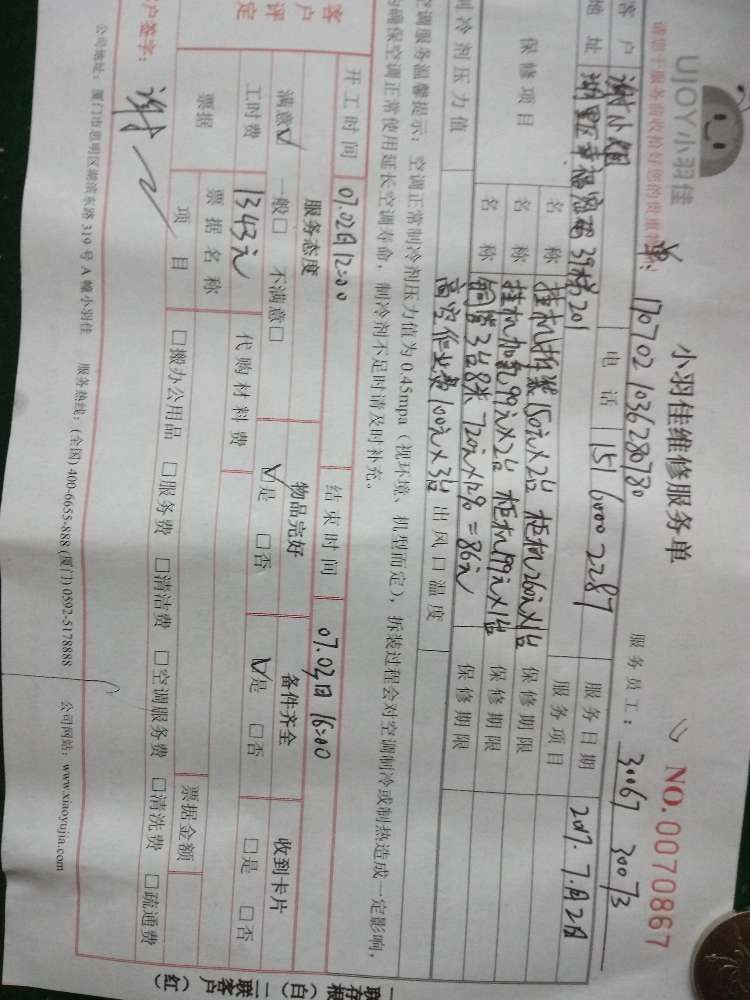 UJOY小羽佳
小羽佳维修服务单
NO.0070867
单 170702103628780
服务员工：30067 30073
客户 谢小姐 电话 151 6000 2287 服务日期 2017.7月2日
地址 湖里区幸福家园39梯201 服务项目
保修项目 名称 挂机拆装150元×2台 柜机260元×1台 保修期限
名称 挂机加氟90元×2台 柜机199元×1台 保修期限
名称 铜管3台8米 保修期限
制冷剂压力值 高空作业费100元×3台 出风口温度
空调服务温馨提示：空调正常制冷剂压力值为0.45mpa（视环境、机型而定），拆装过程会对空调制冷或制热造成一定影响，
确保空调正常使用延长空调寿命，制冷剂不足时请及时补充。
开工时间 07.02日12:00 结束时间 07.03日16:00
客户评定 服务态度 物品完好 备件齐全 收到卡片
满意☑ 一般□ 不满意□ ☑是 □否 ☑是 □否 □是 □否
工时费 1343元 代购材料费
票据 票据名称 票据金额
项目 □搬办公用品 □服务费 □清洁费 □空调服务费 □清洗费 □疏通费
户签字：谢
公司地址：厦门市思明区湖滨东路319号A幢小羽佳 服务热线：(全国)400-6655-888 (厦门)0592-5178888 公司网站：www.xiaoyujia.com
一联存根（白）二联客户（红）